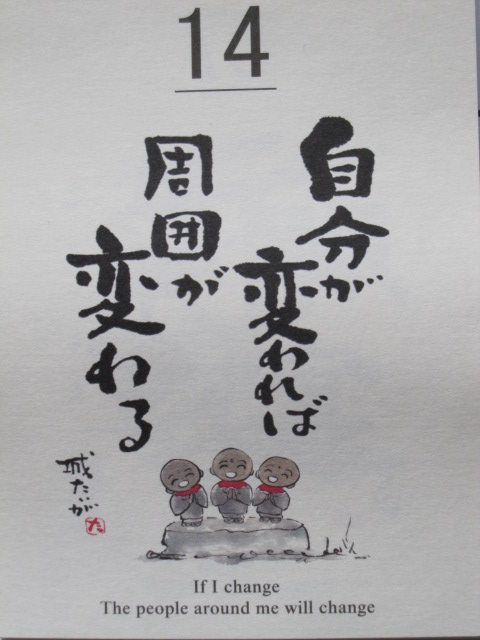 14
自分が
変われば
周囲が
変わる
城たいが
た
If I change
The people around me will change